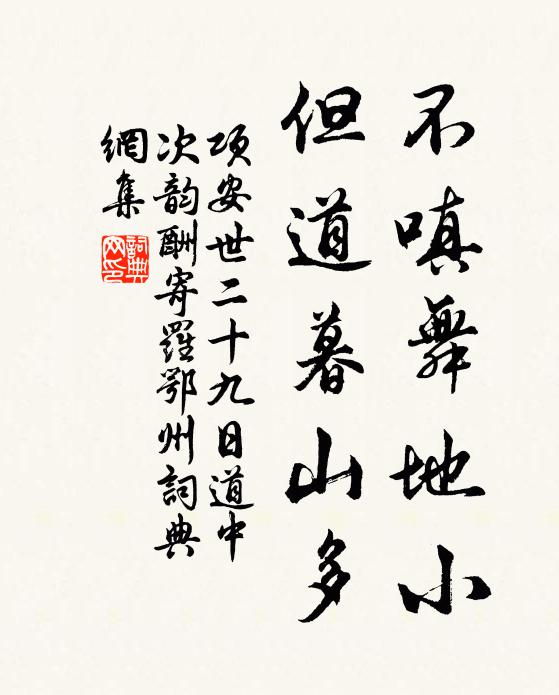 不嗔舞地小
但道暮山多
項安世二十九日道中
次韵酬寄羅鄂州詞典
網集
詞典
网印